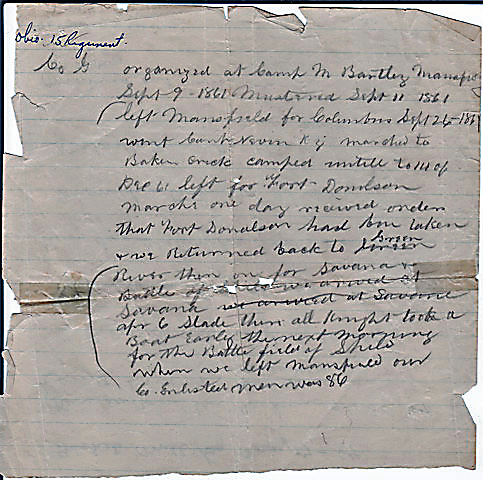 Ohio. 15 Regiment.
Co G organized at Camp M Bartley Mansfield
Sept 9 - 1861 Musterred Sept 11 1861
left Mansfield for Columbus Sept 26 - 1861
went Camp Nevin Ky marched to
Bakon Crick camped untill to 14 of
Dec 61 left for Fort - Donilson
March one day recived orders
that Fort Donalson had bin taken
& we Returned back to Green
River then on for Savana &
Battle of
Savana we arived at Savana
apr 6 Stade thair all Knight took a
Boat Early the next morning
for the Battle field of Shilo
when we left Mansfield our
Co. Enlisted men was 86